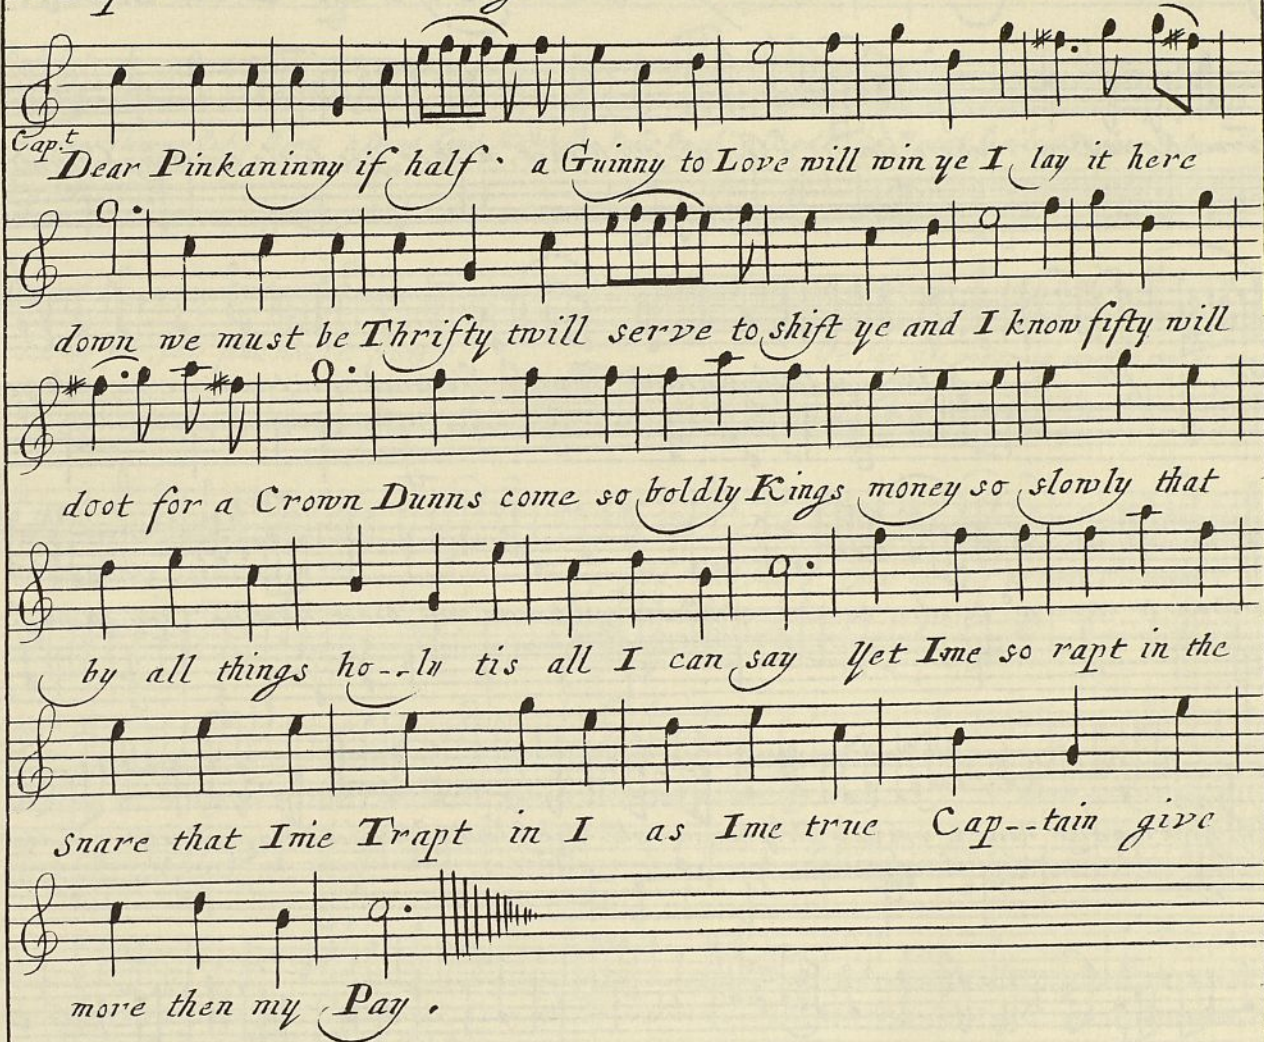 Cap.t
Dear Pinkaninny if half a Guinny to Love will win ye I lay it here
down we must be Thrifty twill serve to shift ye and I know fifty will
doot for a Crown Dunns come so boldly Kings money so slowly that
by all things ho--ly tis all I can say Yet Ime so rapt in the
snare that Ime Trapt in I as Ime true Cap--tain give
more then my Pay.